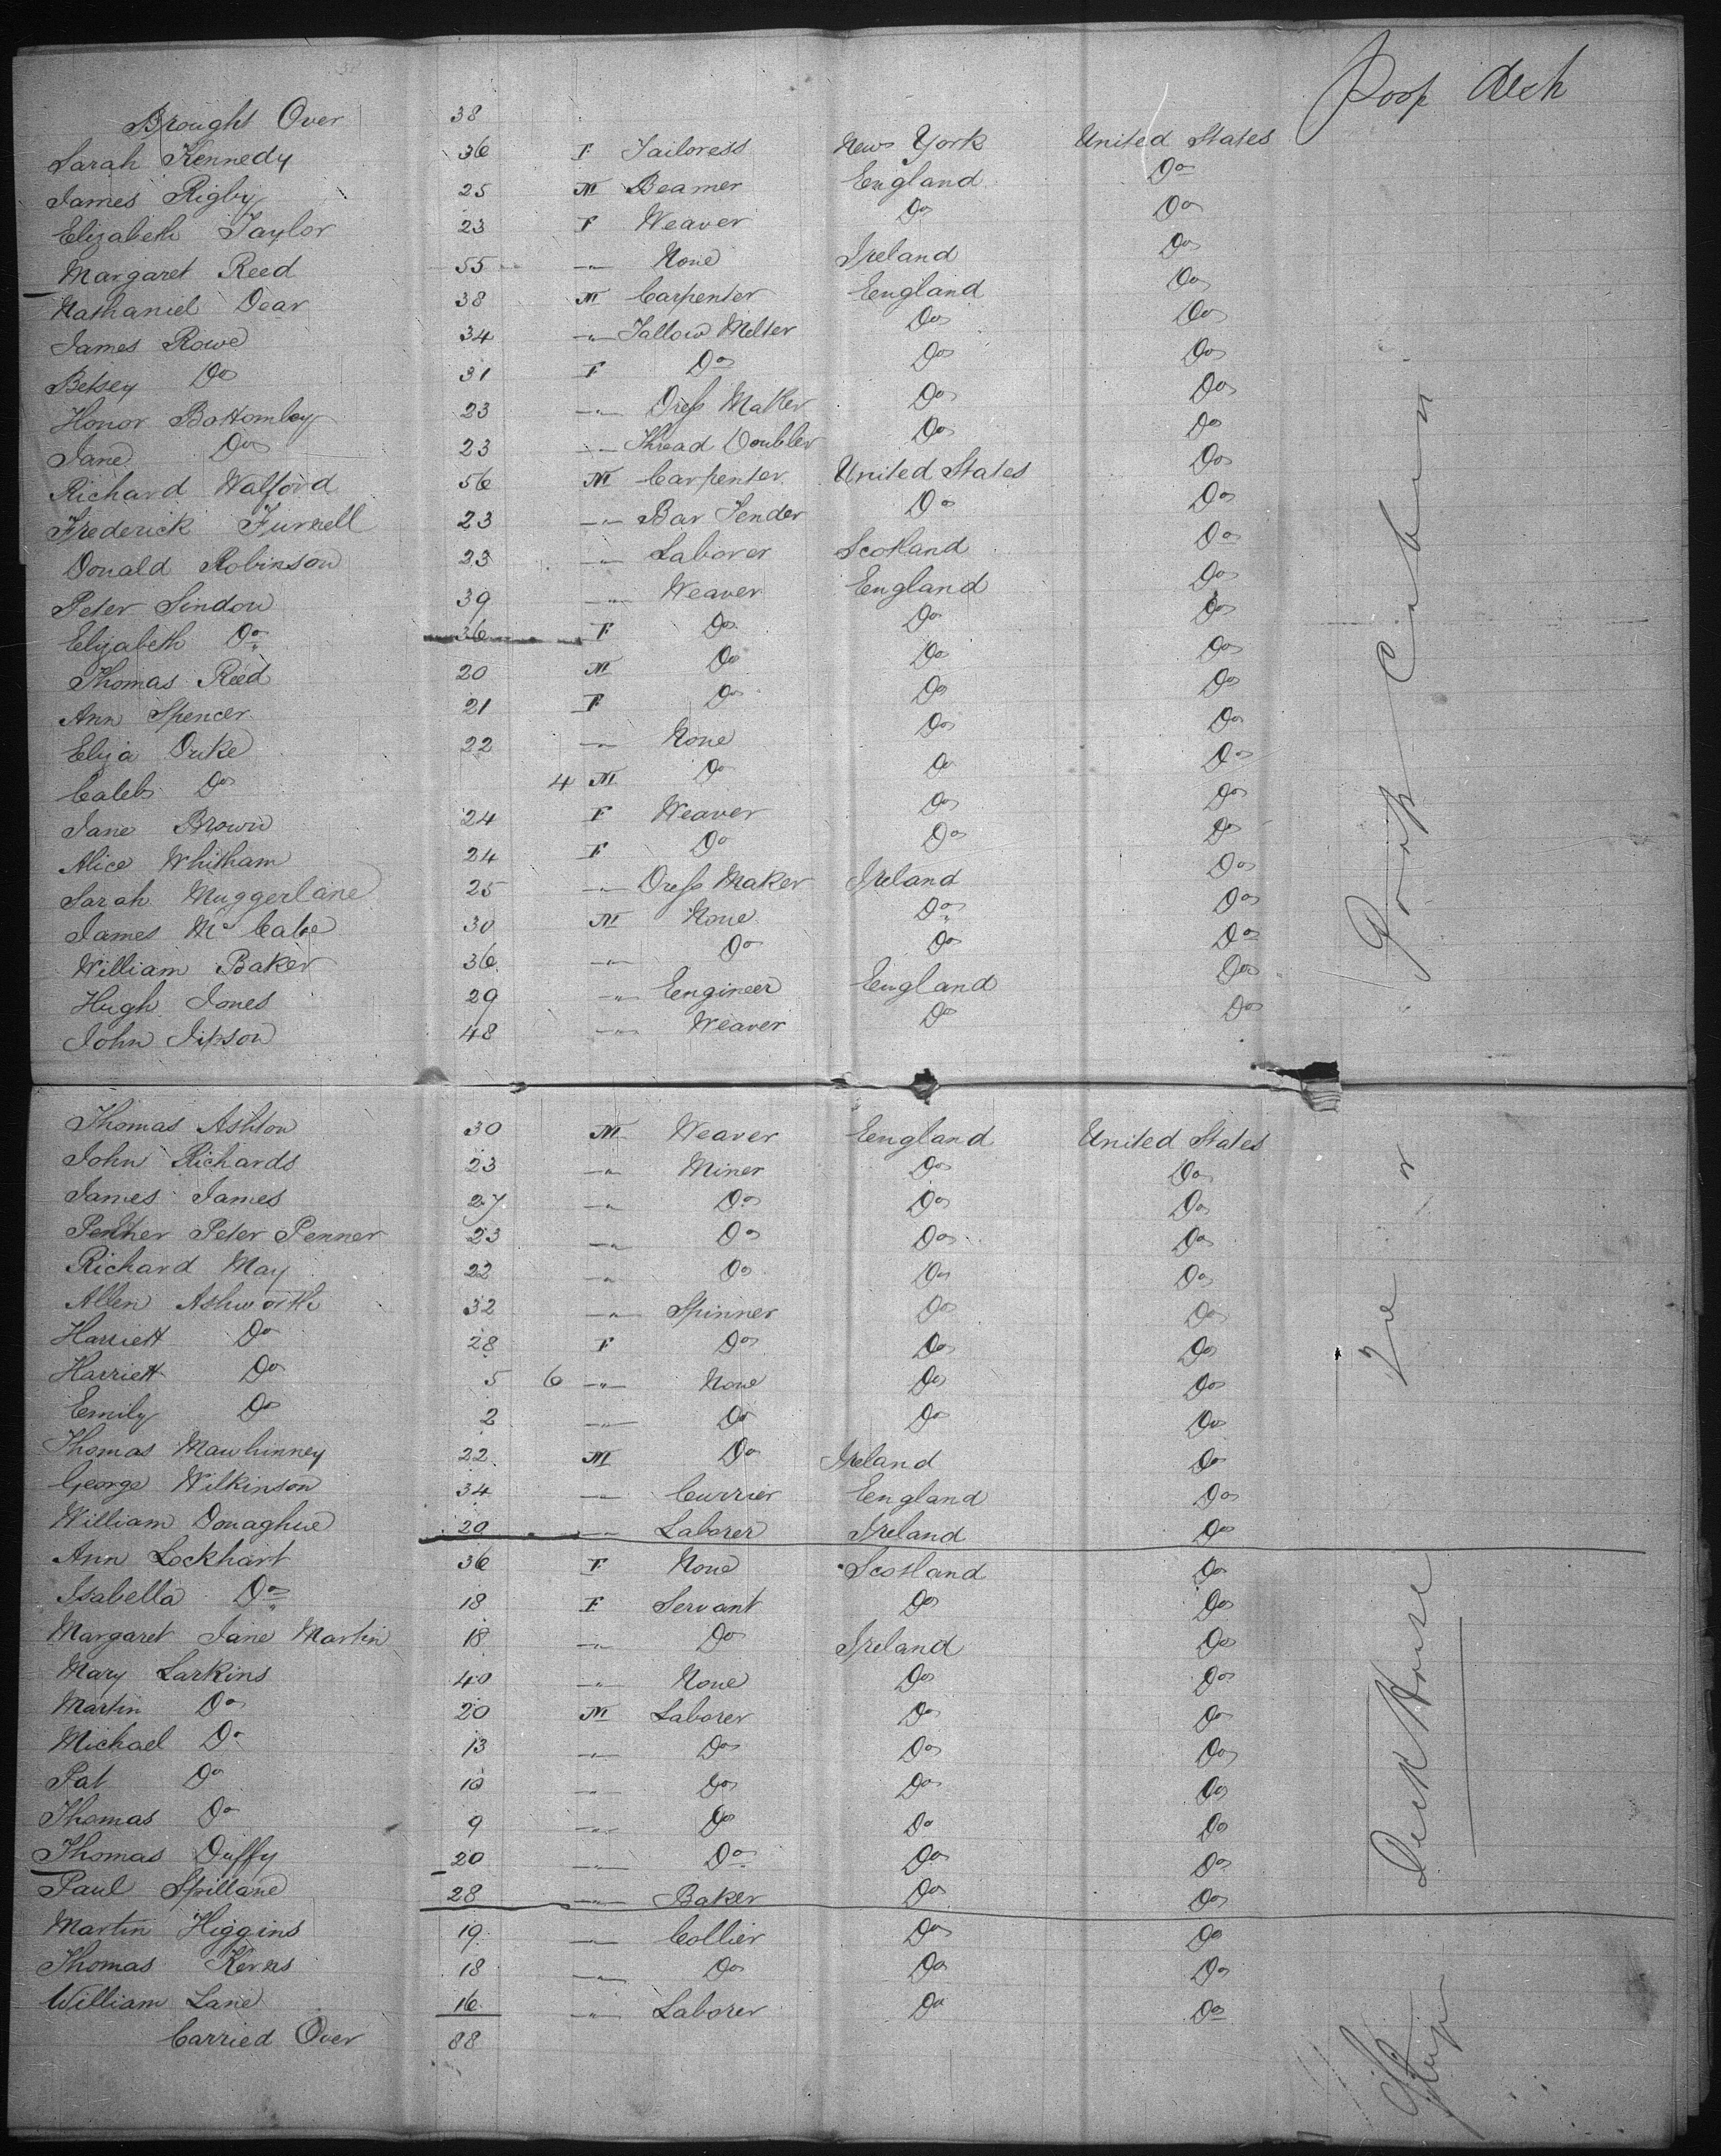 Poop deck
Brought Over 38
Sarah Kennedy 36 F Tailoress New York United States
James Rigby 25 M Beamer England Do
Elizabeth Taylor 23 F Weaver Do Do
Margaret Reed 55 " None Ireland Do
Nathaniel Dear 38 M Carpenter England Do
James Rowe 34 " Tallow Melter Do Do
Betsey Do 31 F Do Do Do
Honor Bottomley 23 " Dress Maker Do Do
Jane Do 23 " Thread Doubler Do Do
Richard Walford 56 M Carpenter United States Do
Frederick Furnell 23 " Bar Tender Do Do
Donald Robinson 23 " Laborer Scotland Do
Peter Sindow 39 " Weaver England Do
Elizabeth Do 36 F Do Do Do
Thomas Reed 20 M Do Do Do
Ann Spencer 21 F Do Do Do
Eliza Duke 22 " None Do Do
Caleb Do 4 M Do Do Do
Jane Brown 24 F Weaver Do Do
Alice Whitham 24 F Do Do Do
Sarah Muggerlane 25 " Dress Maker Ireland Do
James McCabe 30 M None Do Do
William Baker 36 " Do Do Do
Hugh Jones 29 " Engineer England Do
John Jipson 48 " Weaver Do Do
Thomas Ashton 30 M Weaver England United States
John Richards 23 " Miner Do Do
James James 27 " Do Do Do
Penner Peter Penner 23 " Do Do Do
Richard May 22 " Do Do Do
Allen Ashworth 32 " Spinner Do Do
Harriett Do 28 F Do Do Do
Harriett Do 5 6 " None Do Do
Emily Do 2 " Do Do Do
Thomas Mawhinney 22 M Do Ireland Do
George Wilkinson 34 " Currier England Do
William Donaghue 20 " Laborer Ireland Do
Ann Lockhart 36 F None Scotland Do
Isabella Do 18 F Servant Do Do
Margaret Jane Martin 18 " Do Ireland Do
Mary Larkins 40 " None Do Do
Martin Do 20 M Laborer Do Do
Michael Do 13 " Do Do Do
Pat Do 10 " Do Do Do
Thomas Do 9 " Do Do Do
Thomas Duffy 20 " Do Do Do
Paul Spillane 28 " Baker Do Do
Martin Higgins 19 " Collier Do Do
Thomas Kerns 18 " Do Do Do
William Lane 16 " Laborer Do Do
Carried Over 88
Poop Cabin
Deck House